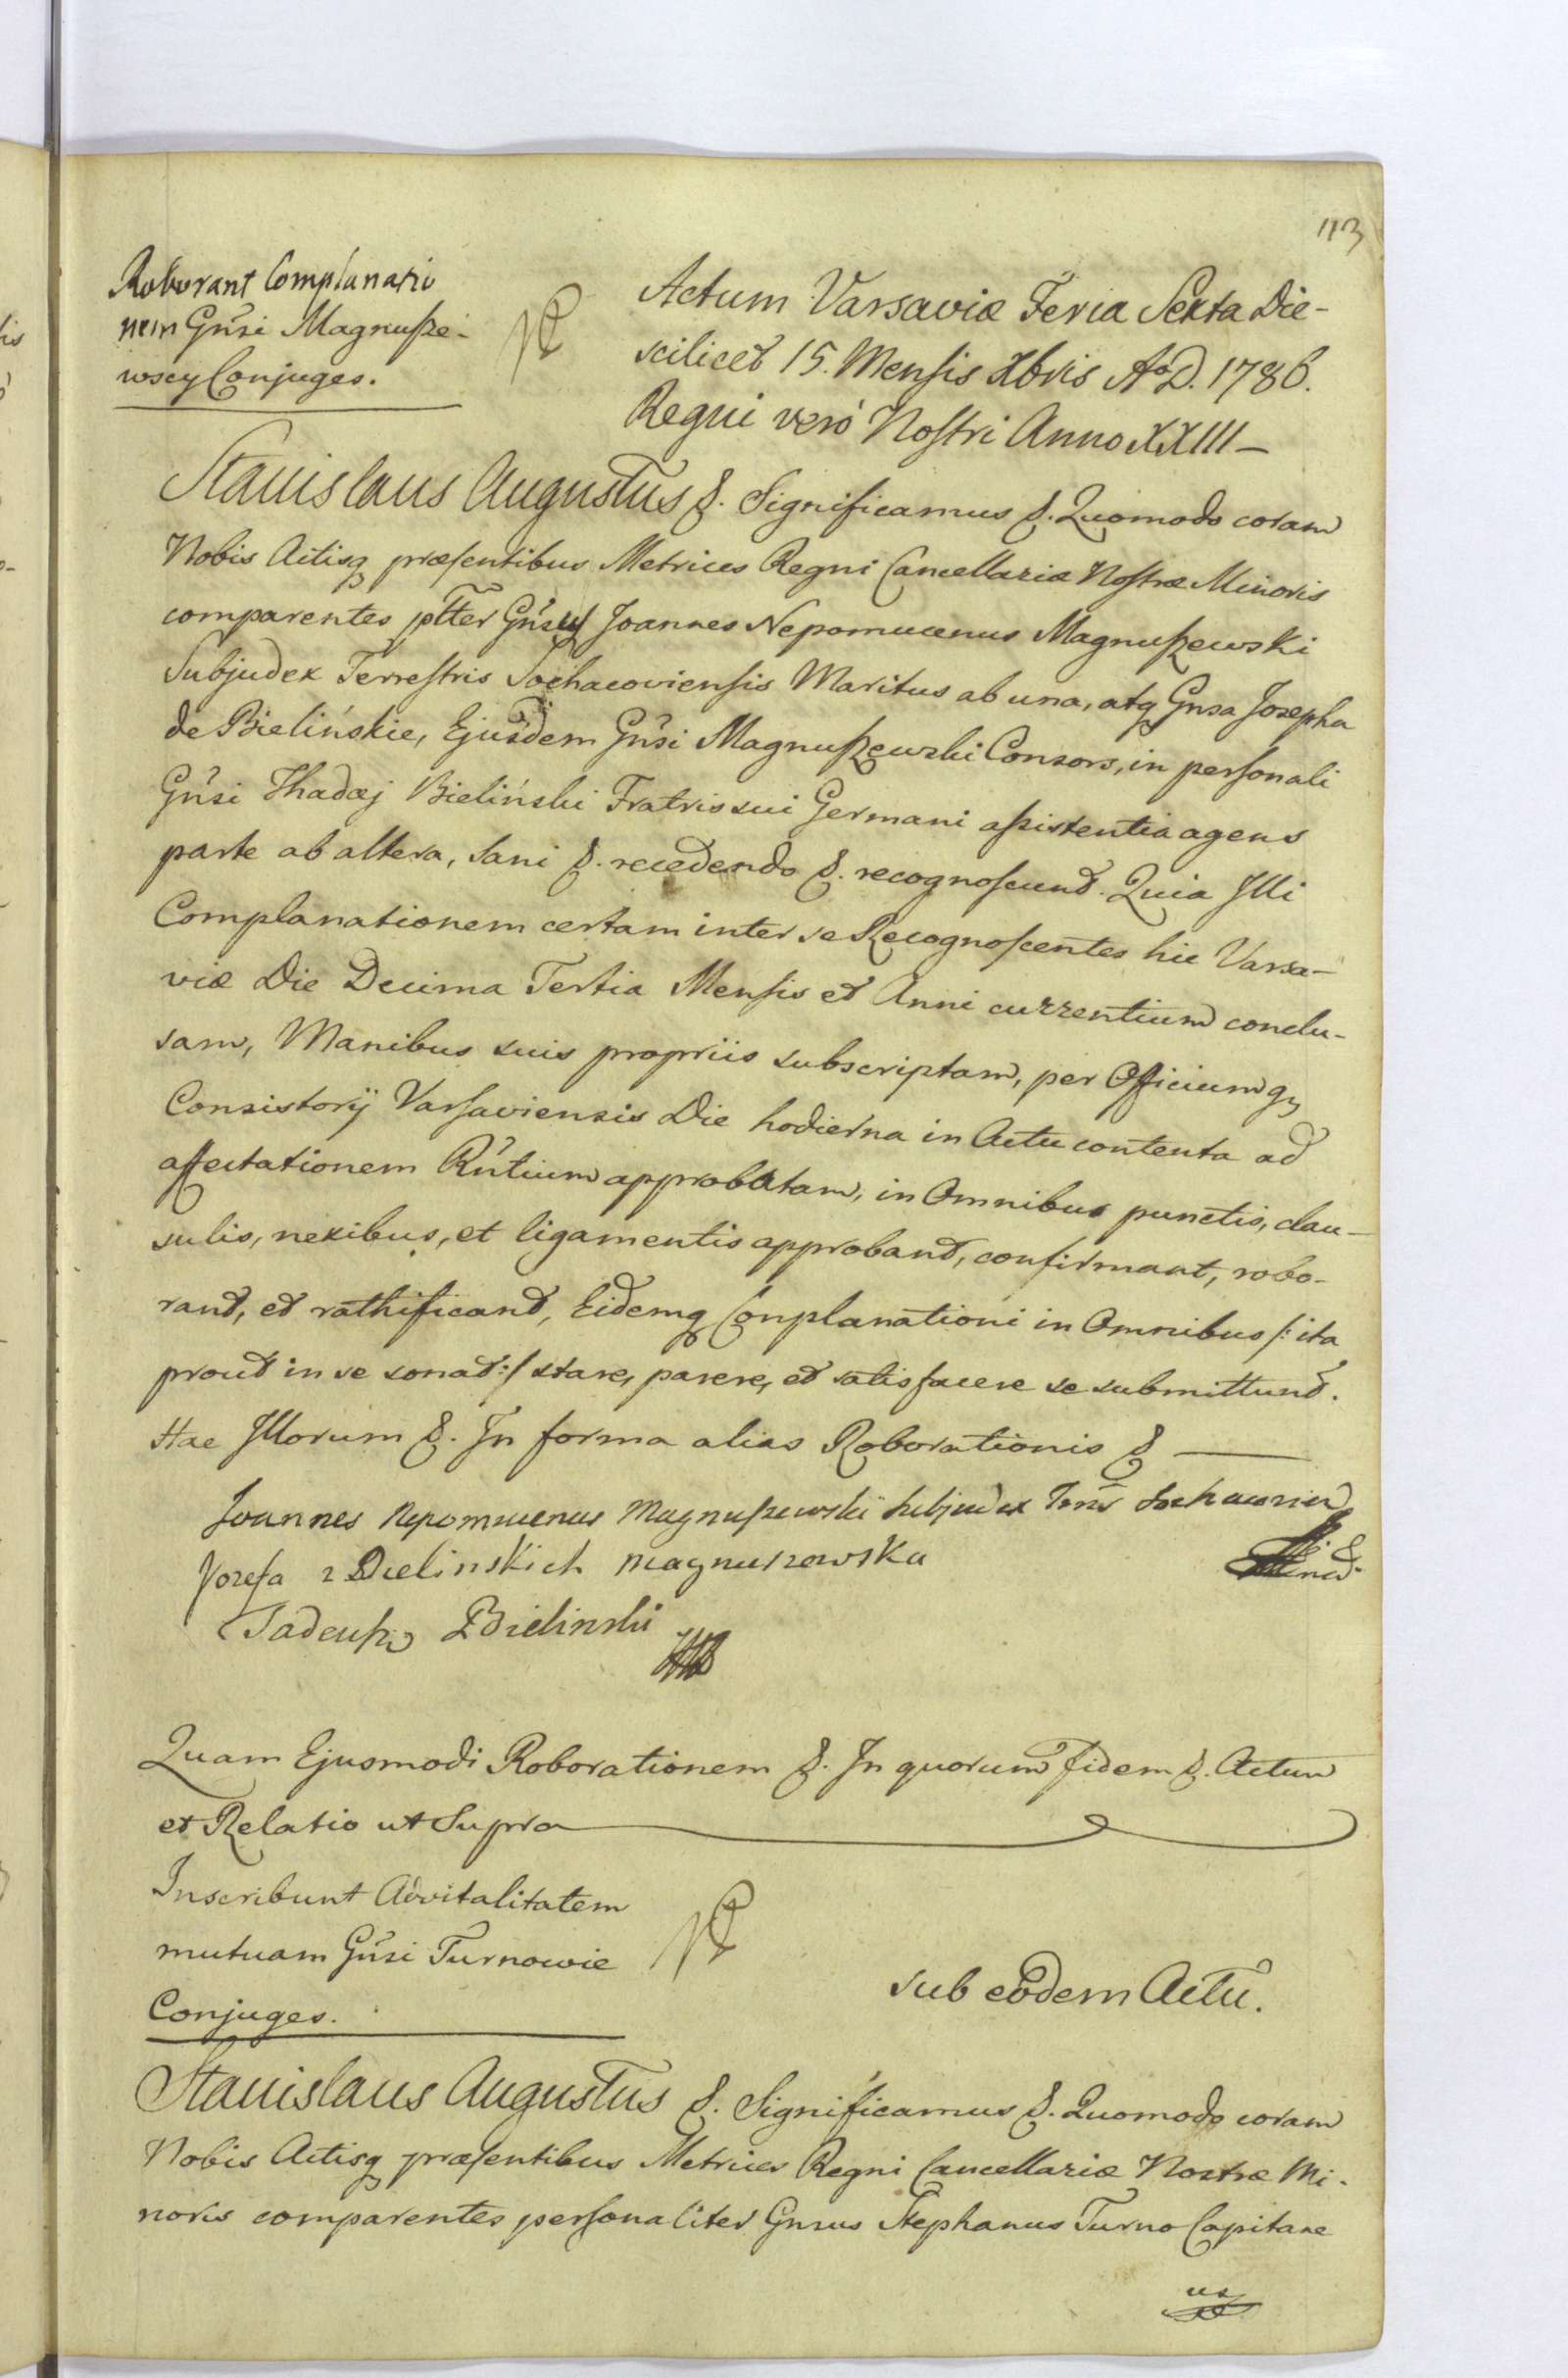 113
Roborant Complanatio
nem Gnsi Magnusze-
wscy Conjuges.
Actum Varsaviæ Feria Sexta Die-
scilicet 15. Mensis Xbris Aº D. 1786.
Regni verò Nostri Anno XXIII—
Stanislaus Augustus &. Significamus &. Quomodo coram
Nobis Actisq præsentibus Metrices Regni Cancellariæ Nostræ Minoris
comparentes pltter Gnsus Joannes Nepomucenus Magnuszewski
Subjudex Terrestris Sochacoviensis Maritus ab una, atq Gnsa Josepha
de Bielińskie, Ejusdem Gnsi Magnuszewski Consors, in personali
Gnsi Thadæj Bieliński Fratris sui Germani assistentia agens
parte ab altera, Sani &. recedendo &. recognoscunt. Quia Illi
Complanationem certam inter se Recognoscentes hic Varsa-
viæ Die Decima Tertia Mensis et Anni currentium conclu-
sam, Manibus suis propriis subscriptam, per Officiumq
Consistorij Varsaviensis Die hodierna in Actu contenta ad
affectationem Rntium approbatam, in Omnibus punctis, clau-
sulis, nexibus, et ligamentis approbant, confirmant, robo-
rant, et rathificant, Eidemq Conplanationi in Omnibus /: ita
prout in se sonat :/ stare, parere, et satisfacere se submittunt.
Hac Illorum &. In forma alias Roborationis &
Joannes Nepomucenus Magnuszewski Subjudex Terris Sochacovien
Jozefa z Bielinskich Magnuszewska
Tadeusz Bielinski
Quam Ejusmodi Roborationem &. In quorum fidem &. Actum
et Relatio ut Supra
Inscribunt Advitalitatem
mutuam Gnsi Turnowie
Conjuges.
sub eodem Actu.
Stanislaus Augustus &. Significamus &. Quomodo coram
Nobis Actisq præsentibus Metrices Regni Cancellariæ Nostræ Mi-
noris comparentes personaliter Gnsus Stephanus Turno Capitane
us